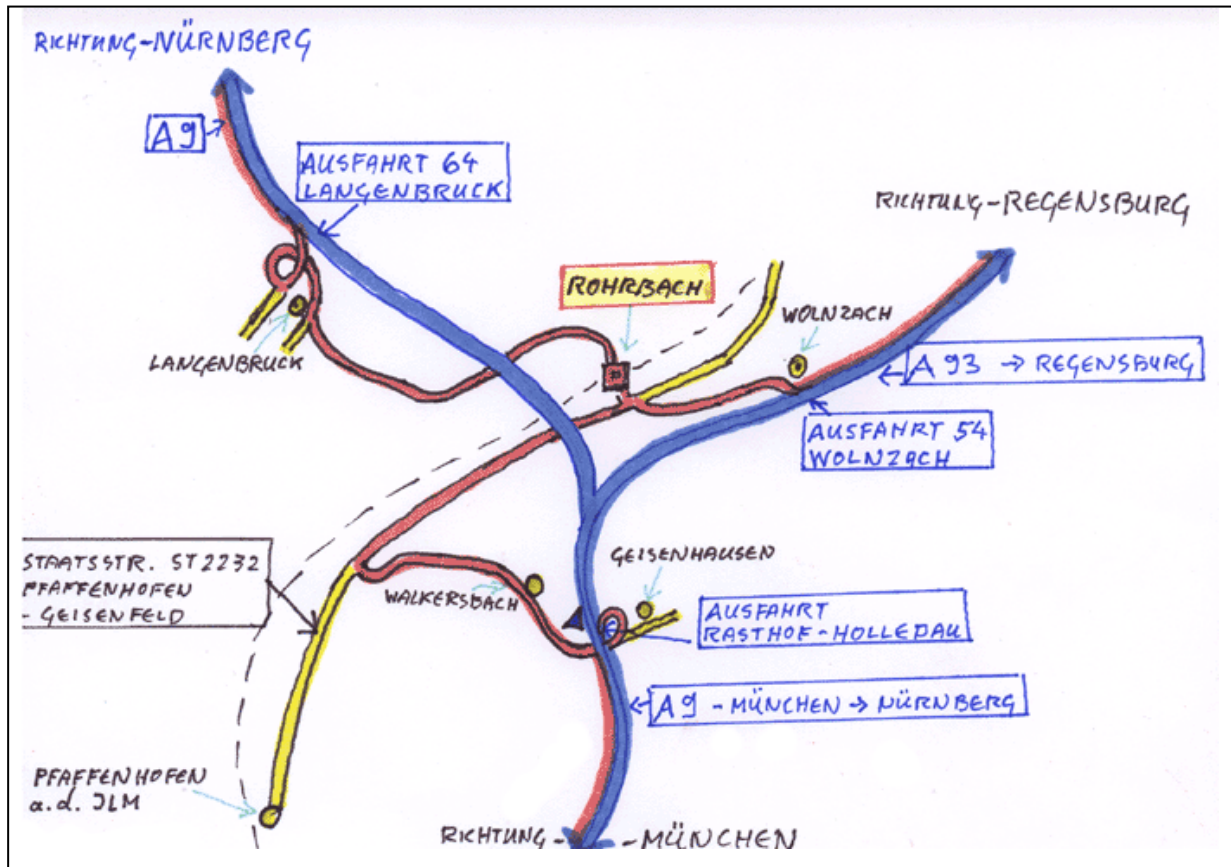 RICHTUNG-NÜRNBERG
A9
AUSFAHRT 64
LANGENBRUCK
RICHTUNG-REGENSBURG
ROHRBACH
WOLNZACH
LANGENBRUCK
A 93 → REGENSBURG
AUSFAHRT 54
WOLNZACH
STAATSSTR. ST2232
PFAFFENHOFEN
- GEISENFELD
WALKERSBACH
GEISENHAUSEN
AUSFAHRT
RASTHOF-HOLLEDAU
A9 -MÜNCHEN → NÜRNBERG
PFAFFENHOFEN
a.d. ILM
RICHTUNG--MÜNCHEN